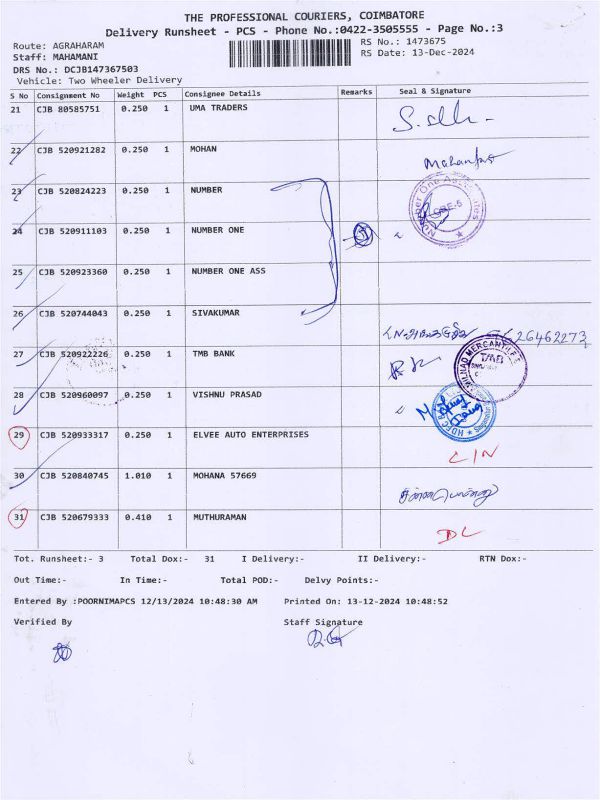 THE PROFESSIONAL COURIERS, COIMBATORE
Delivery Runsheet - PCS - Phone No.:0422-3505555 - Page No.:3
Route: AGRAHARAM
RS No.: 1473675
Staff: MAHAMANI
RS Date: 13-Dec-2024
DRS No.: DCJB147367503
Vehicle: Two Wheeler Delivery
S No Consignment No Weight PCS Consignee Details Remarks Seal & Signature
21 CJB 80585751 0.250 1 UMA TRADERS
22 CJB 520921282 0.250 1 MOHAN
23 CJB 520824223 0.250 1 NUMBER
24 CJB 520911103 0.250 1 NUMBER ONE
25 CJB 520923360 0.250 1 NUMBER ONE ASS
26 CJB 520744043 0.250 1 SIVAKUMAR
26462273
27 CJB 520922226 0.250 1 TMB BANK
TMB
28 CJB 520960097 0.250 1 VISHNU PRASAD
29 CJB 520933317 0.250 1 ELVEE AUTO ENTERPRISES
C/N
30 CJB 520840745 1.010 1 MOHANA 57669
31 CJB 520679333 0.410 1 MUTHURAMAN
DL
Tot. Runsheet:- 3 Total Dox:- 31 I Delivery:- II Delivery:- RTN Dox:-
Out Time:- In Time:- Total POD:- Delvy Points:-
Entered By :POORNIMAPCS 12/13/2024 10:48:30 AM Printed On: 13-12-2024 10:48:52
Verified By Staff Signature